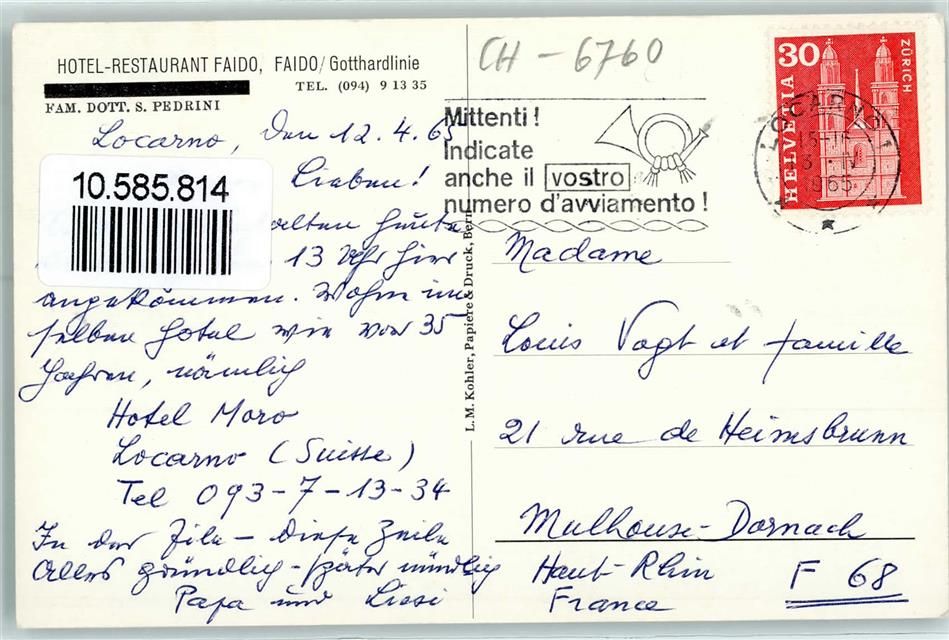 HOTEL-RESTAURANT FAIDO, FAIDO/Gotthardlinie
TEL. (094) 9 13 35
FAM. DOTT. S. PEDRINI
Locarno, den 12.4.65
Lieben!
10.585.814
alten heute
13 Uhr hier
angekommen. Wohne im
selben Hotel wie vor 35
Jahren, nämlich
Hotel Moro
Locarno (Suisse)
Tel 093-7-13-34
In der Eile - diese Zeile
Alles gründlich - später mündlich
Papa und Liesi
L.M. Kohler, Papiere & Druck, Bern
CH - 6760
Mittenti!
Indicate
anche il vostro
numero d'avviamento!
30
HELVETIA
ZÜRICH
LOCARNO 1
1965
Madame
Louis Vogt et famille
21 rue de Heimsbrunn
Mulhouse-Dornach
Haut-Rhin F 68
France